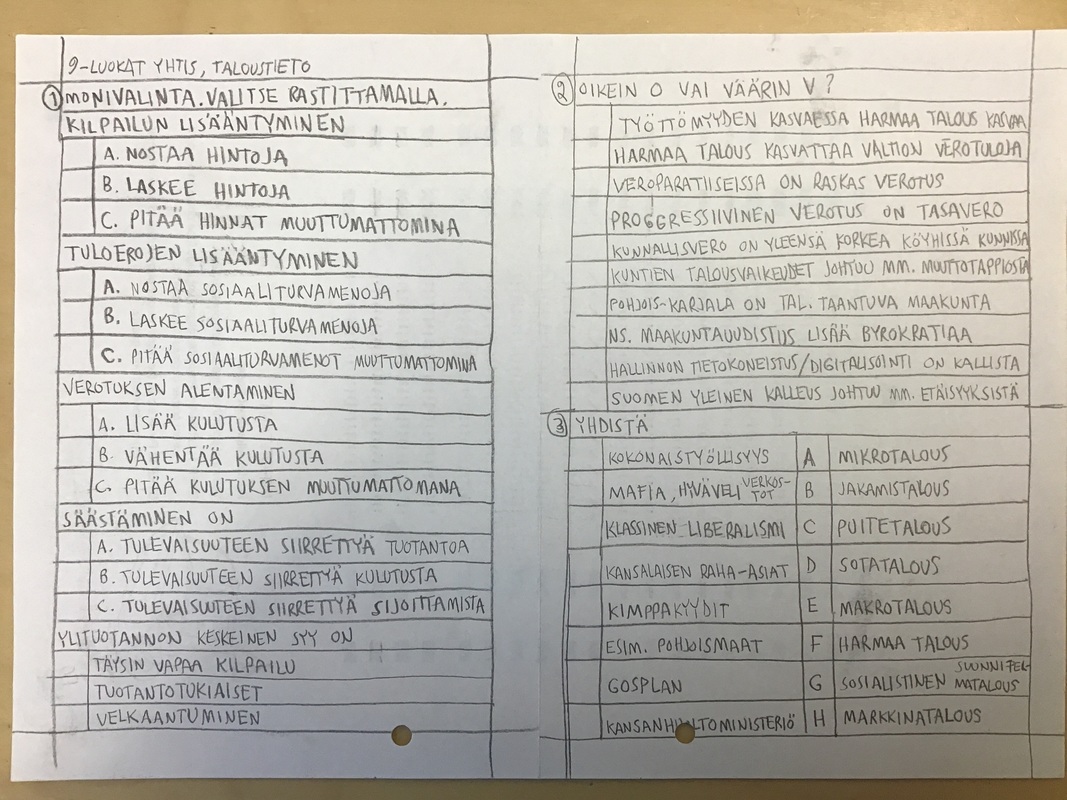 9-LUOKAT YHTIS, TALOUSTIETO
① MONIVALINTA. VALITSE RASTITTAMALLA.
KILPAILUN LISÄÄNTYMINEN
A. NOSTAA HINTOJA
B. LASKEE HINTOJA
C. PITÄÄ HINNAT MUUTTUMATTOMINA
TULOEROJEN LISÄÄNTYMINEN
A. NOSTAA SOSIAALITURVAMENOJA
B. LASKEE SOSIAALITURVAMENOJA
C. PITÄÄ SOSIAALITURVAMENOT MUUTTUMATTOMINA
VEROTUKSEN ALENTAMINEN
A. LISÄÄ KULUTUSTA
B. VÄHENTÄÄ KULUTUSTA
C. PITÄÄ KULUTUKSEN MUUTTUMATTOMANA
SÄÄSTÄMINEN ON
A. TULEVAISUUTEEN SIIRRETTYÄ TUOTANTOA
B. TULEVAISUUTEEN SIIRRETTYÄ KULUTUSTA
C. TULEVAISUUTEEN SIIRRETTYÄ SIJOITTAMISTA
YLITUOTANNON KESKEINEN SYY ON
TÄYSIN VAPAA KILPAILU
TUOTANTOTUKIAISET
VELKAANTUMINEN
② OIKEIN O VAI VÄÄRIN V?
TYÖTTÖMYYDEN KASVAESSA HARMAA TALOUS KASVAA
HARMAA TALOUS KASVATTAA VALTION VEROTULOJA
VEROPARATIISEISSA ON RASKAS VEROTUS
PROGGRESSIIVINEN VEROTUS ON TASAVERO
KUNNALLISVERO ON YLEENSÄ KORKEA KÖYHISSÄ KUNNISSA
KUNTIEN TALOUSVAIKEUDET JOHTUU MM. MUUTTOTAPPIOSTA
POHJOIS-KARJALA ON TAL. TAANTUVA MAAKUNTA
NS. MAAKUNTAUUDISTUS LISÄÄ BYROKRATIAA
HALLINNON TIETOKONEISTUS/DIGITALISOINTI ON KALLISTA
SUOMEN YLEINEN KALLEUS JOHTUU MM. ETÄISYYKSISTÄ
③ YHDISTÄ
KOKONAISTYÖLLISYYS A MIKROTALOUS
MAFIA, HYVÄVELI VERKOS-TOT B JAKAMISTALOUS
KLASSINEN LIBERALISMI C PUITETALOUS
KANSALAISEN RAHA-ASIAT D SOTATALOUS
KIMPPAKYYDIT E MAKROTALOUS
ESIM. POHJOISMAAT F HARMAA TALOUS
GOSPLAN G SOSIALISTINEN SUUNNITEL-MATALOUS
KANSANHUOLTOMINISTERIÖ H MARKKINATALOUS